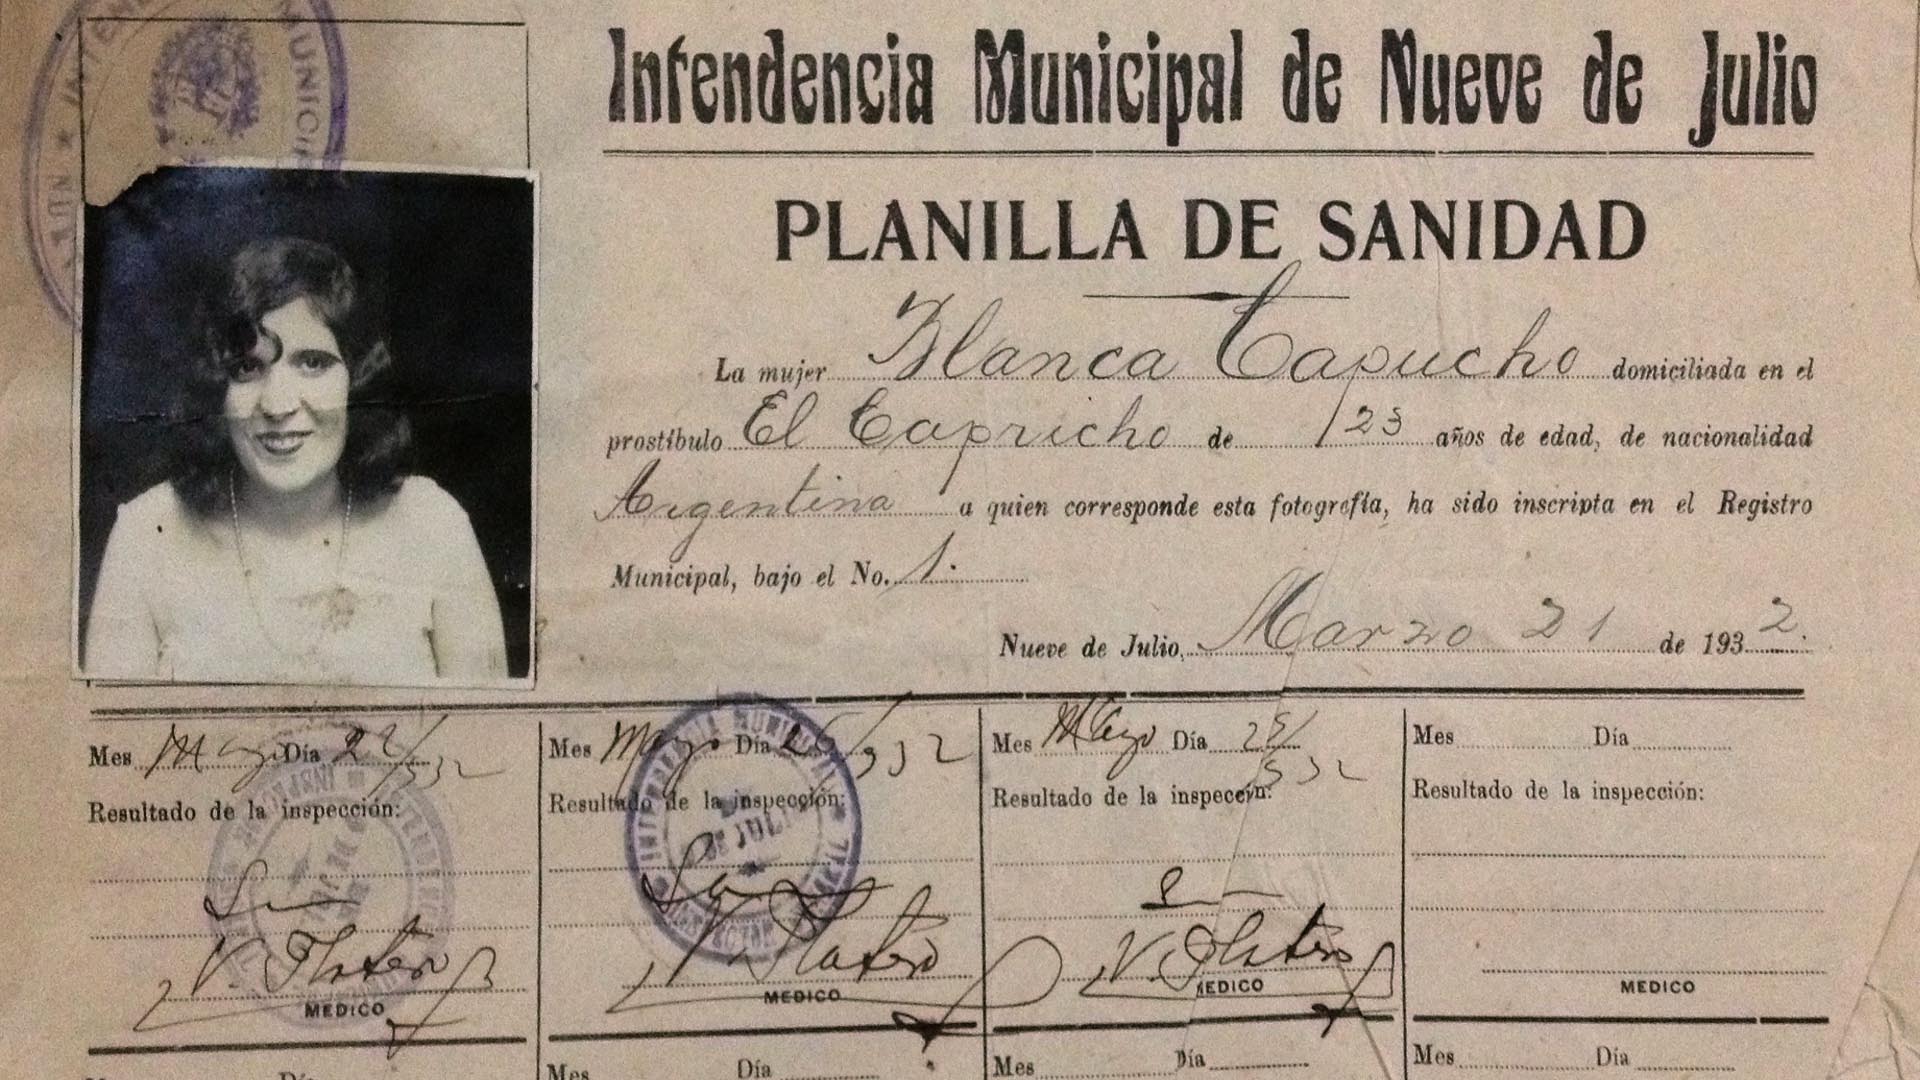 Intendencia Municipal de Nueve de Julio
PLANILLA DE SANIDAD
La mujer Blanca Capucho domiciliada en el
prostíbulo El Capricho de 23 años de edad, de nacionalidad
Argentina a quien corresponde esta fotografía, ha sido inscripta en el Registro
Municipal, bajo el No. 1.
Nueve de Julio, Marzo 21 de 1932.
Mes Mayo Día 22/932
Resultado de la inspección:
V. Platero
MEDICO
Mes Mayo Día 26/932
Resultado de la inspección:
Sana
V. Platero
MEDICO
Mes Mayo Día 28/932
Resultado de la inspección:
V. Platero
MEDICO
Mes Día
Resultado de la inspección:
MEDICO
Mes Día
Mes Día
Mes Día
Mes Día
INTENDENCIA MUNICIPAL
DE JULIO